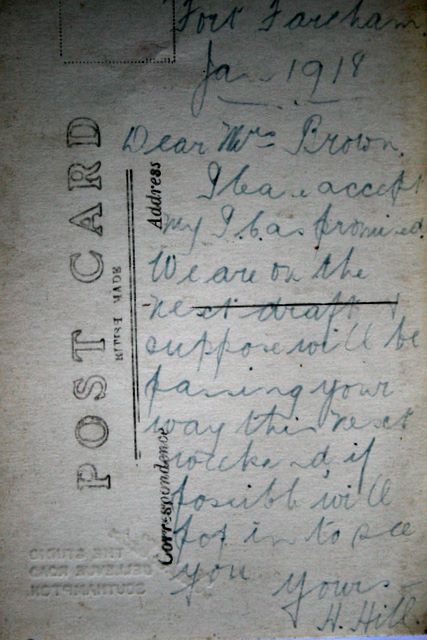 Fort Fareham
Jan 1918
Dear Mrs Brown.
accept
my promised.
We are on the
next draft &
suppose will be
passing your
way this next
weekend, if
possible will
pop in to see
you
Yours
H. Hill.
POST CARD
BRITISH MADE
Address
Correspondence
THE STUDIO
BELLEVUE ROAD
SOUTHAMPTON.